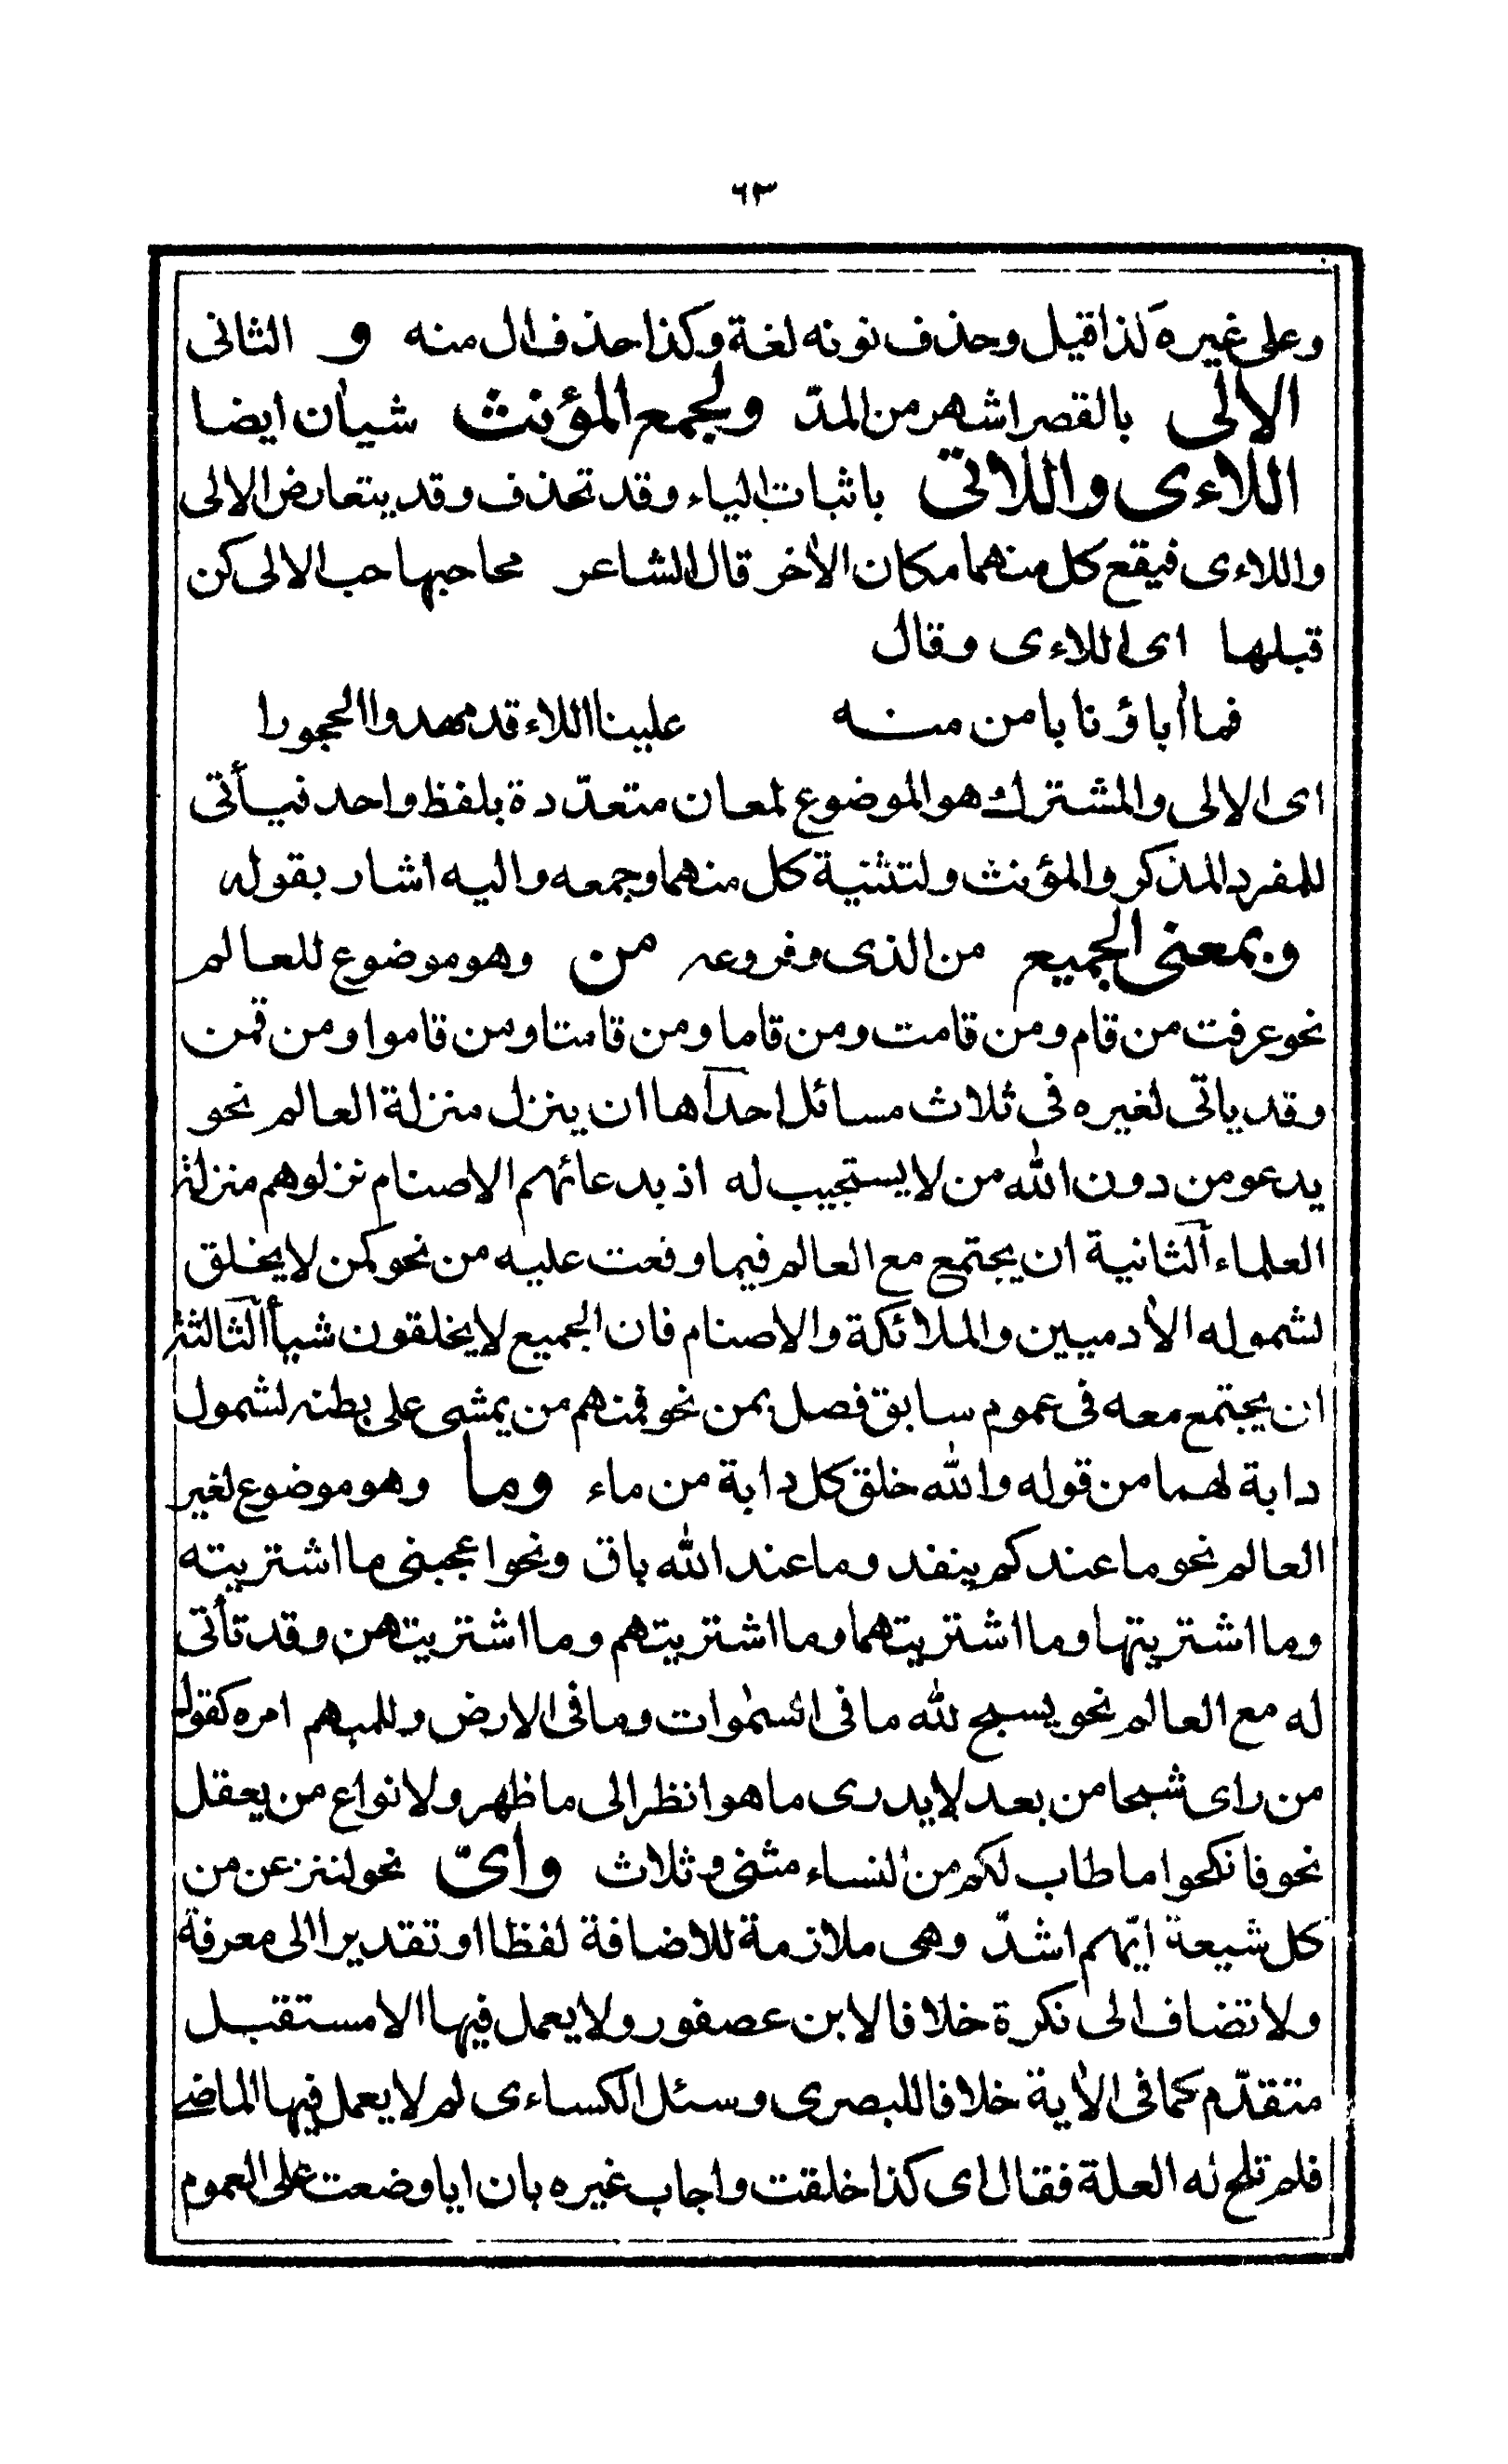 ٦٣
وعلى غيره لذا قيل وحذف نونه لغة وكذا حذف ال منه و الثانى
الالى بالقصر اشهر من المدّ ولجمع المؤنث شيأن ايضا
اللاءى واللاتى باثبات الياء وقد تحذف وقد يتعارض الالى
واللاءى فيقع كل منهما مكان الأخر قال الشاعر محا حبها حب الالى كن
قبلها اى اللاءى وقال
فما أباؤنا با من منه علينا اللاء قد مهدوا الحجورا
اى الالى والمشترك هو الموضوع لمعان متعدّدة بلفظ واحد فيأتى
للمفرد المذكر والمؤنث ولتثنية كل منهما وجمعه واليه اشار بقوله
وبمعنى الجميع من الذى وفروعه من وهو موضوع للعالم
نحو عرفت من قام ومن قامت ومن قاما ومن قامتا ومن قاموا ومن قمن
وقد ياتى لغيره فى ثلاث مسائل احدآها ان ينزل منزلة العالم نحو
يدعو من دون الله من لا يستجيب له اذ بدعائهم الاصنام نزلوهم منزلة
العلماء الثانية ان يجتمع مع العالم فيما وقعت عليه من نحو كمن لا يخلق
لشموله الأدميين والملائكة والاصنام فان الجميع لا يخلقون شيأ الثالثة
ان يجتمع معه فى عموم سابق فصل بمن نحو فمنهم من يمشى على بطنه لشمول
دابة لهما من قوله والله خلق كل دابة من ماء وما وهو موضوع لغير
العالم نحو ما عندكم ينفد وما عند الله باق ونحو اعجبنى ما اشتريته
وما اشتريتها وما اشتريتهما وما اشتريتهم وما اشتريتهن وقد تأتى
له مع العالم نحو يسبح لله ما فى السموات وما فى الارض وللمبهم امره كقول
من راى شبحا من بعد لا يدرى ما هو انظر الى ما ظهر ولانواع من يعقل
نحو فانكحوا ما طاب لكم من النساء مثنى وثلاث وأىّ نحو لننزعن من
كل شيعة ايّهم اشدّ وهى ملازمة للاضافة لفظا او تقديرا الى معرفة
ولا تضاف الى نكرة خلافا لابن عصفور ولا يعمل فيها الا مستقبل
متقدّم كما فى الأية خلافا للبصرى وسئل الكساءى لم لا يعمل فيها الماضى
فلم تلح له العلة فقال اى كذا خلقت واجاب غيره بان ايا وضعت على العموم